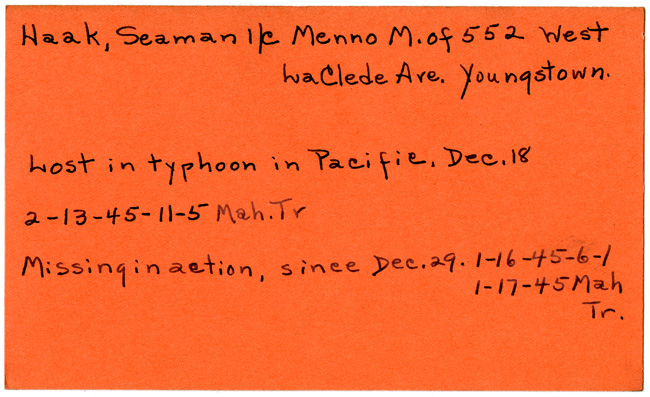 Haak, Seaman 1/c Menno M. of 552 West
LaClede Ave. Youngstown.
Lost in typhoon in Pacific, Dec. 18
2-13-45-11-5 Mah. Tr
Missing in action, since Dec. 29. 1-16-45-6-1
1-17-45 Mah
Tr.